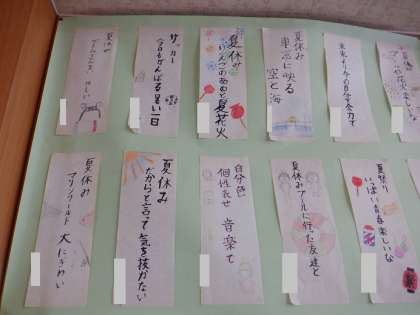 未来より今の自分を全力で
夏休み
車窓に映る
空と海
夏休み
あめと夏花火
サッカー
今日もがんばる暑い一日
夏休み
夏祭り
いっぱい青春楽しいな
夏休みプールに行った友達と
自分色
個性出せ 音楽で
夏休み
だからと言って気を抜かない
夏休み
マリンワールド 大にぎわい